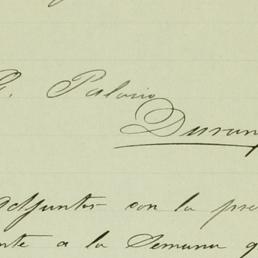 G. Palacio
Duran
adjuntos con la pre
nte a la Semana q